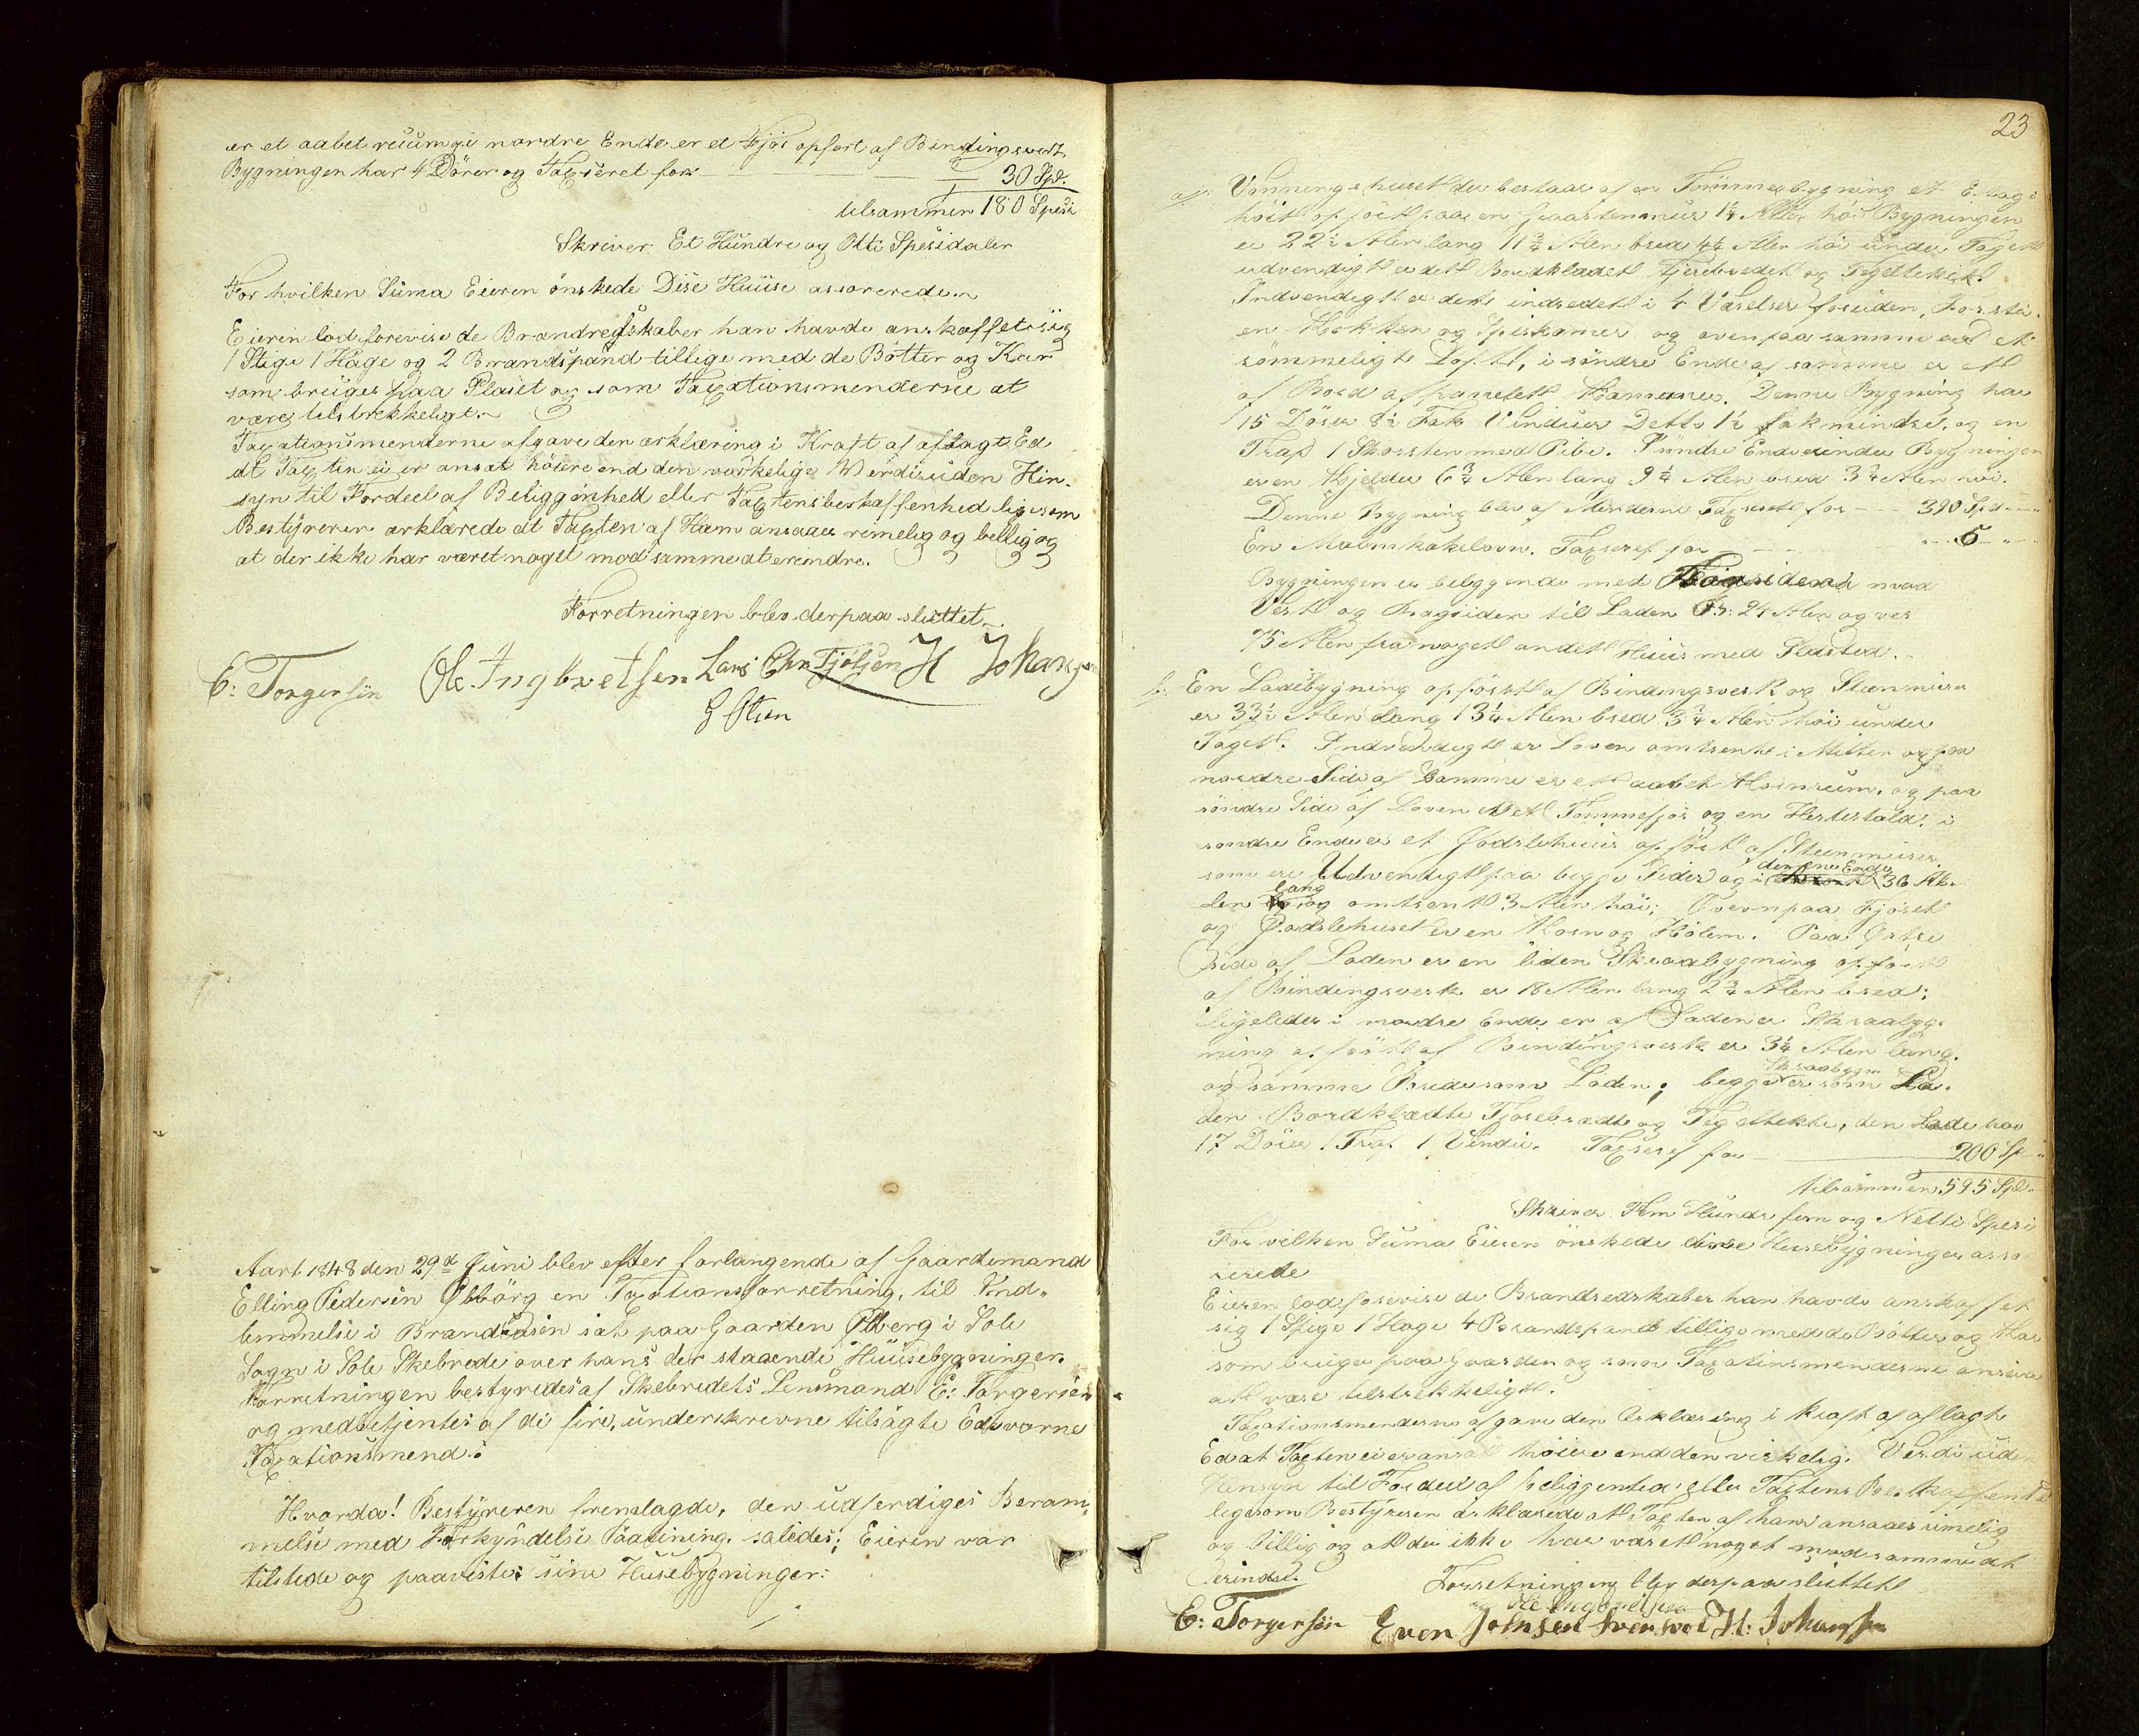 er et aabet ruum, i nordre Ende er et Fjøs opført af Bindingsverk,
Bygningen har 4 Dörer og Taxseret for 30 Spd.
tilsammen 180 Spesi
Skriver: Et Hundre og Otti Spesidaler
For hvilken Suma Eieren önskede Dise Huuse assorerede.
Eieren lod forevise de Brandredskaber han havde anskaffet sig
1 Stige 1 Hage og 2 Brandspand tillige med de Bötter og Kar
som bruges paa Plaset og som Taxationsmenderne at
være tilstrekkeligt.
Taxationsmenderne afgave den ærklæring i Kraft af aflagt Ed
at Taxten ei er ansat höiere end den værkelige Werdi uden Hin-
syn til Fordeel af Beliggenhed eller Taxtens beskaffenhed ligesom
Bestyreren ærklærede at Taxten af Ham ansaaes rimelig og bellig og
at der ikke har været noget mod samme at ereindre.
Forretningen blev derpaa sluttet.
E: Torgersen Ole Ingbretsen Lars Chr. Fjölsen H Johansen
G Olsen
Aart 1848 den 29d Juni blev efter forlangende af Gaardsmand
Elling Pedersen Ølbörg en Taxationsforretning, til Ind-
lemmelse i Brandkasen sat paa Gaarden Ølberg i Sole
Sogn i Sole Skebrede over hans der staaende Huusebygninger.
Forretningen bestyredes af Skebredets Lensmand E: Torgersen
og medbetjentes af de fire, underskrevne tilsagte Edsvorne
Taxationsmend:
Hvorda! Bestyreren fremlagde, den udferdiges Beram-
melse med Forkyndelse Paatining. saledes; Eieren var
tilstede og paaviste: sine Husebygninger:
23
a, Vonningshuset der bestaar af en Tømmerbygning et Etage
höit opfört paa en Graastenmur 1 1/4 Alen höi Bygningen
er 22 1/2 Alen lang 11 3/4 Alen bred 4 1/4 Alen höi under Taget
udvendigt er dett Bordkledet Fjerebredet og Tegeltekket.
Indvendigt er dett indredett i 4 Værelser foruden, Forste.
en Kokken og Spiskamer og ovenpaa samme er Et
sömmeligt Loftt, i söndre Ende af samme er ett
af Bord afpanelett Kamer. Denne Bygning har
15 Dörer 8 1/2 Fak Vinduer Detto 1 1/2 fak mindre, og en
Trap 1 Skorsten med Pibe. Söndre Ende under Bygningen
er en Kjelder 6 3/4 Alen lang 9 1/4 Alen bred 3 3/4 Alen höi.
Denne Bygning blev af Menderne Taxserett for 390 Spd.
En Malmkakelovn. Taxseret for 5
Bygningen er beliggende med mod
Vest og Bagsiden til Laden Ø: 24 Alen og ves
75 Alen fra nogett andett Huus med Ildsted.
b: En Ladebygning opförtt af Bindingsverk og Steenmuer
er 33 1/2 Alen lang 13 1/4 Alen bred 3 3/4 Alen höi under
Taget. Indvendigt er Loven omtrent i Mitten og paa
nordre Side af Samme er ett aabet Kornrum. og paa
söndre Side af Loven er et Tommefjös og en Hestestald. i
sondre Ende er et Gjödslehuus opfört af Steenmuer
som er Udvendigt paa begge Sider og i den ene Ende 36 Al-
len lang og omtrentt 3 Alen höi; Ovenpaa Fjösett
og Gjodslehuset er en Korn og Hölem. Paa Østre
Side af Laden er en liden Skraabygning opfört
af Bindingsverk er 18 Alen lang 2 3/4 Alen bred;
ligeledes i nordre Ende er af Laden er Skraabyg-
ning opförtt af Bindingsverk er 3 1/4 Alen lang.
og samme Brede som Laden; begge Skraabygn er som La-
den Bordkledte Fjorebredte og Tegeltekte, den Lade har
17 Dörer 1 Trap 1 Vindu. Taxseret for 200 Sp
tilsammen 595 Spd.
Skriver Fem Hundre fem og Netti Spesi
For vilken Suma Eieren önskede disse Husebygninger asso-
rerede
Eieren lod forevise de Brandredskaber han havde anskaffet
sig 1 Stige 1 Hage 4 Brandspand tillige med de Bötter og Kar
som bruges paa Gaarden og som Taxatinsmenderne anseer
att være tilstrekkeligt.
Taxationsmenderne afgave den Ærklæring i kraft af aflagte
Ed at Taxten ei er ansat höiere end den virkelig. Verdi uden
Hensyn til Fordeel af beliggenhed eller Taxtens Beskaffenhed
ligesom Bestyreren ærklærede att Taxten af ham ansaaes rimelig
og billig og att der ikke har vöret noget mod samme at
Erindre.
Forretningen blev derpaa sluttett
Ole Ingbretsen
E: Torgersen Even Johnsen H: Johansen